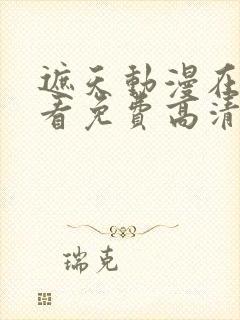 遮天動漫在
看免費高清
瑞克